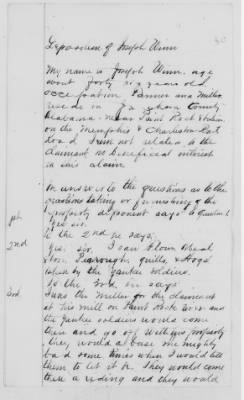 Deposition of Joseph Winn
My name is Joseph Winn, age
about forty six years old
occupation Farmer and Miller
reside in Jackson County
Alabama near Paint Rock Station
on the Memphis & Charleston Rail
Road I am not related to the
claimant no beneficial interest
in his claim
In answer to the questions as to the
question taking or furnishing of the
property deponent says to question 1
1st Yes sir.
To the 2nd he says.
2nd Yes. sir, I saw flour Meal
quilts, & Hogs
taken by the Yankee Soldiers.
3rd To the 3rd he says
I was the Miller for the claimant
at his mill on Paint Rock River and
the Yankee soldiers would come
there and go off with his property
they would abuse me mighty
bad some times when I would tell
them to let it be. They would come
there a riding and they would